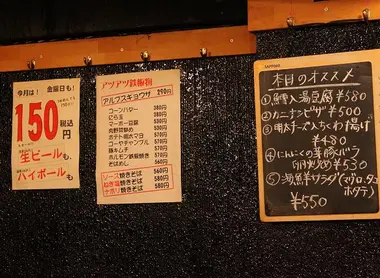 今月は! 金曜日も!
150円
税込
生ビールも、
ハイボールも、
アツアツ鉄板物
アルプスギョウザ 290円
コーンバター 380円
にら玉 380円
マーボー豆腐 530円
肉野菜炒め 530円
ポテト明太マヨ 530円
ゴーヤチャンプル 530円
豚キムチ 530円
ホルモン鉄板焼き 580円
そばめし 660円
ソース焼きそば 560円
ねぎ塩焼きそば 580円
ナポリ焼きそば 580円
SAPPORO
本日のオススメ
①鱈入湯豆腐 ¥580
②カニーナンピザ ¥500
③明太チーズ入ちくわ揚げ
¥480
④にんにくの芽と豚バラ
卵炒め ¥530
⑤海鮮サラダ(マグロ、タコ
ホタテ)
¥550